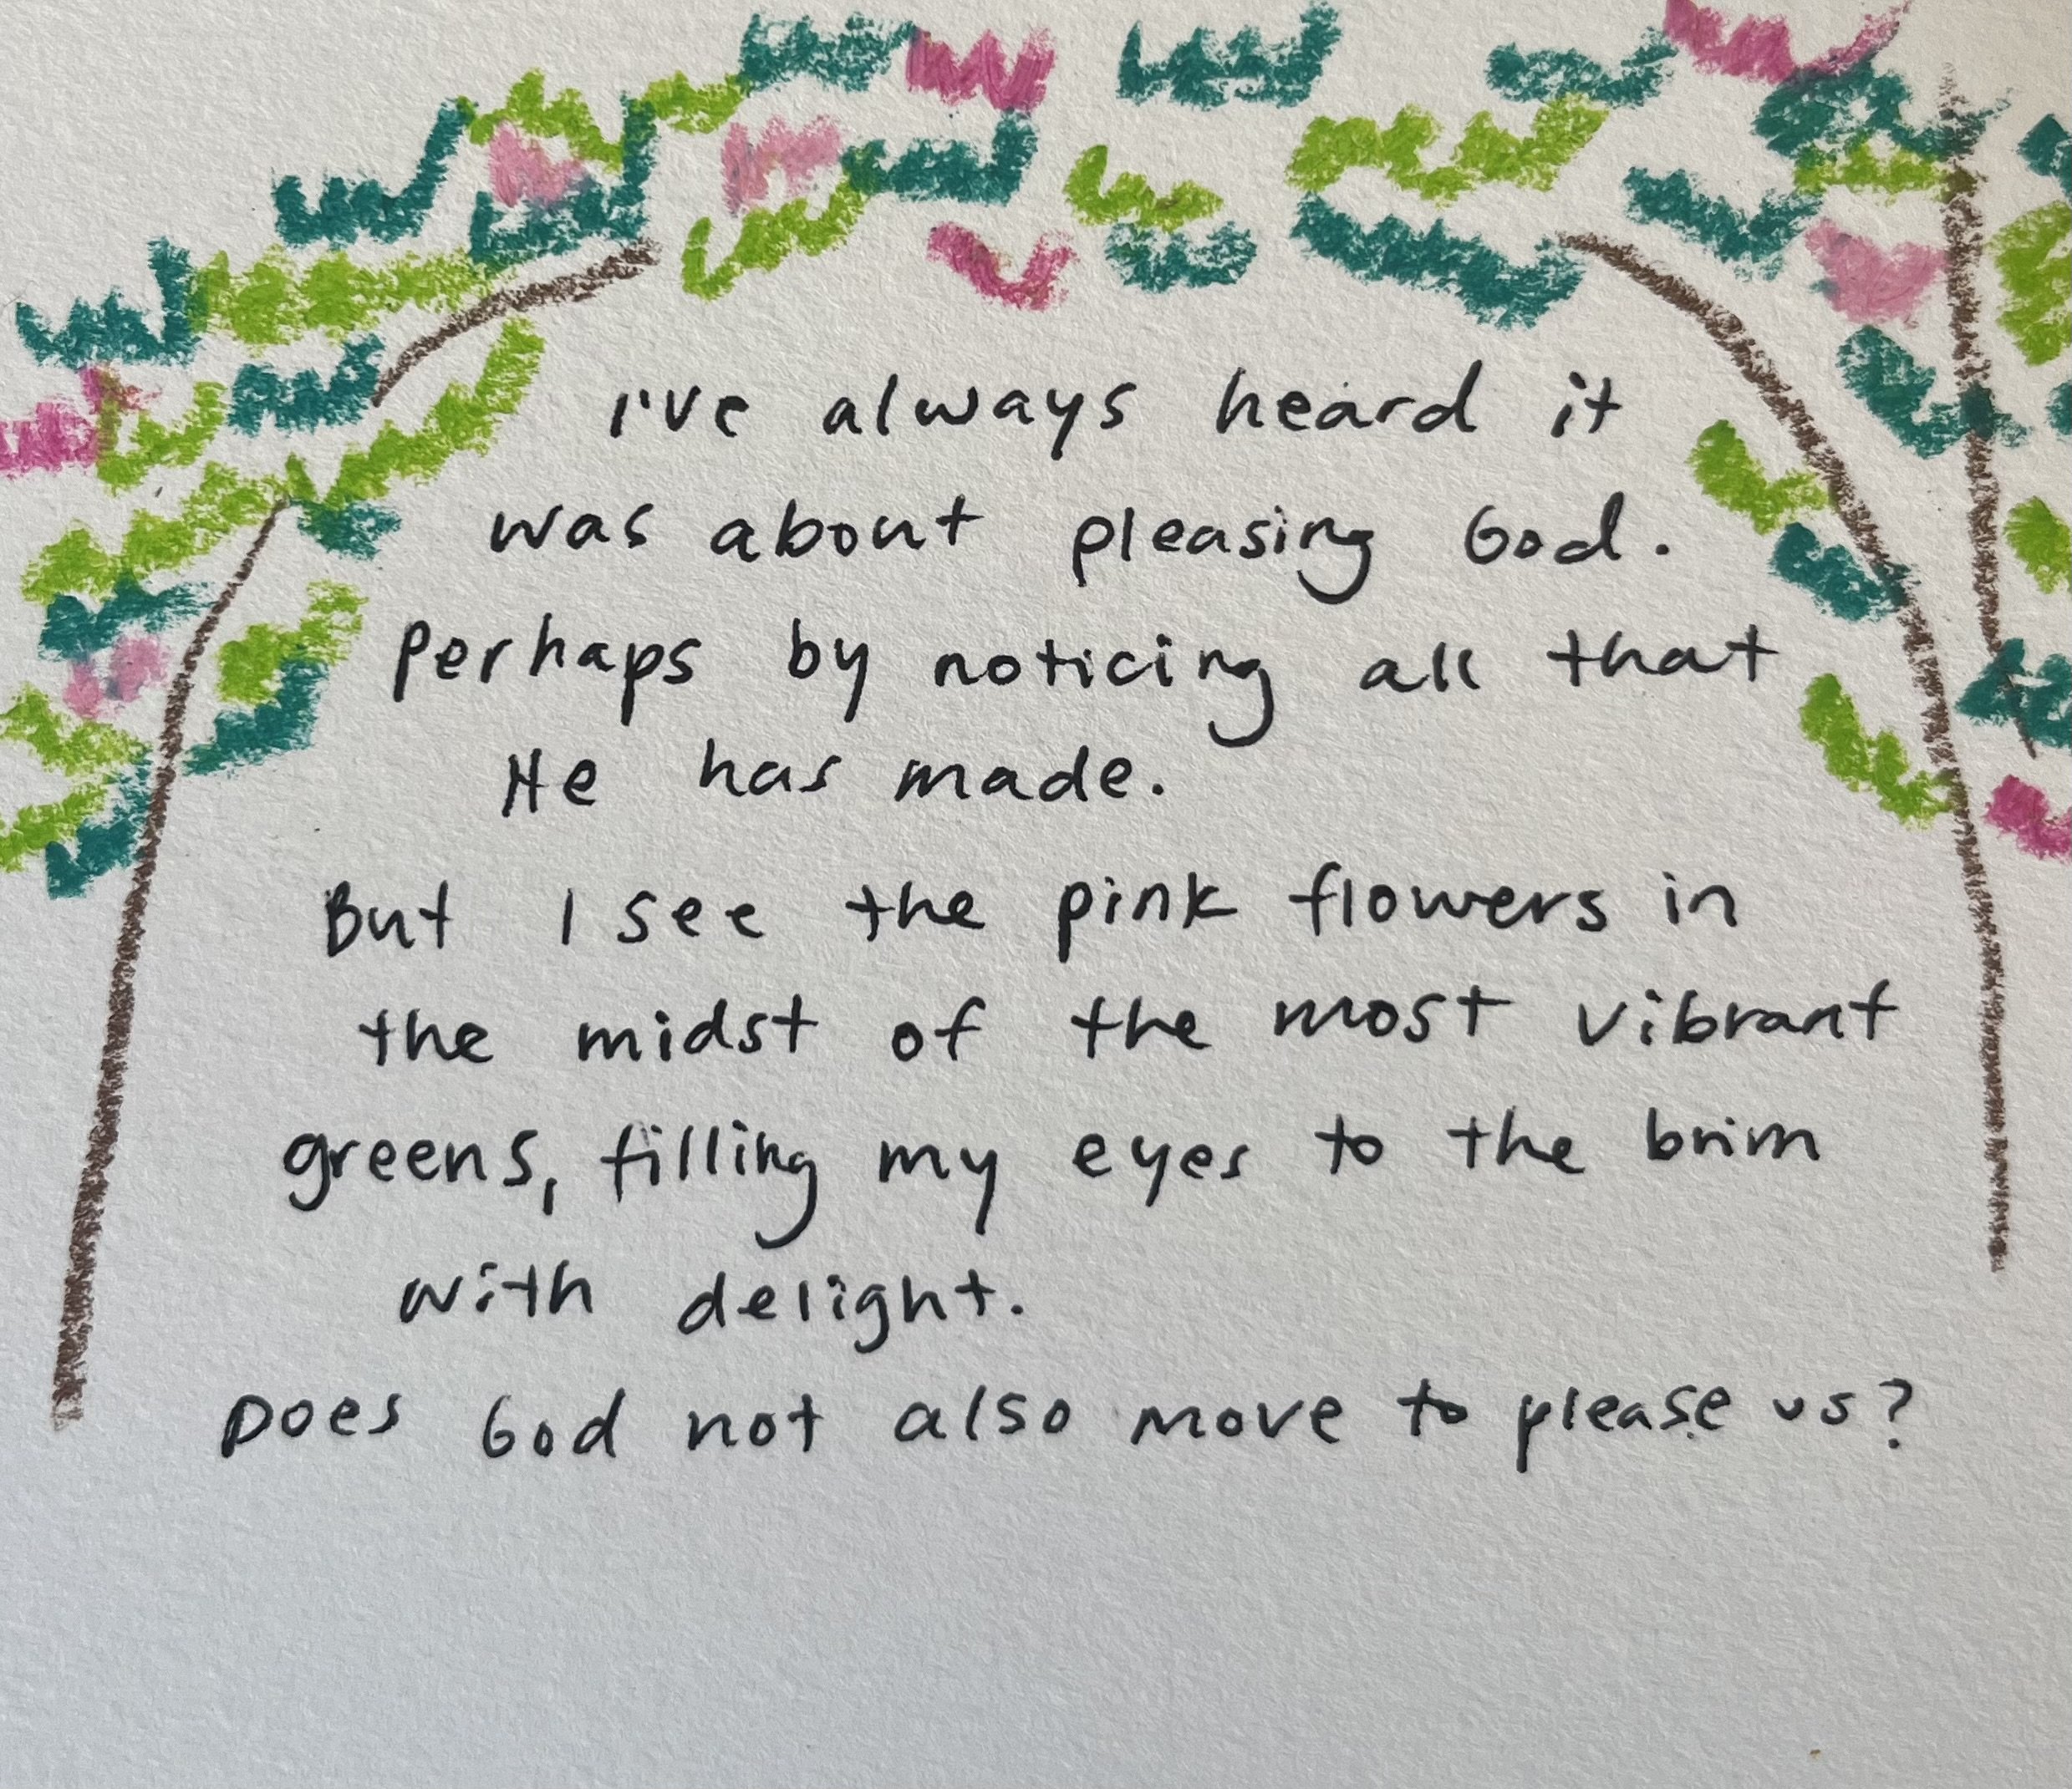 I've always heard it
was about pleasing God.
Perhaps by noticing all that
He has made.
But I see the pink flowers in
the midst of the most vibrant
greens, filling my eyes to the brim
with delight.
Does God not also move to please us?